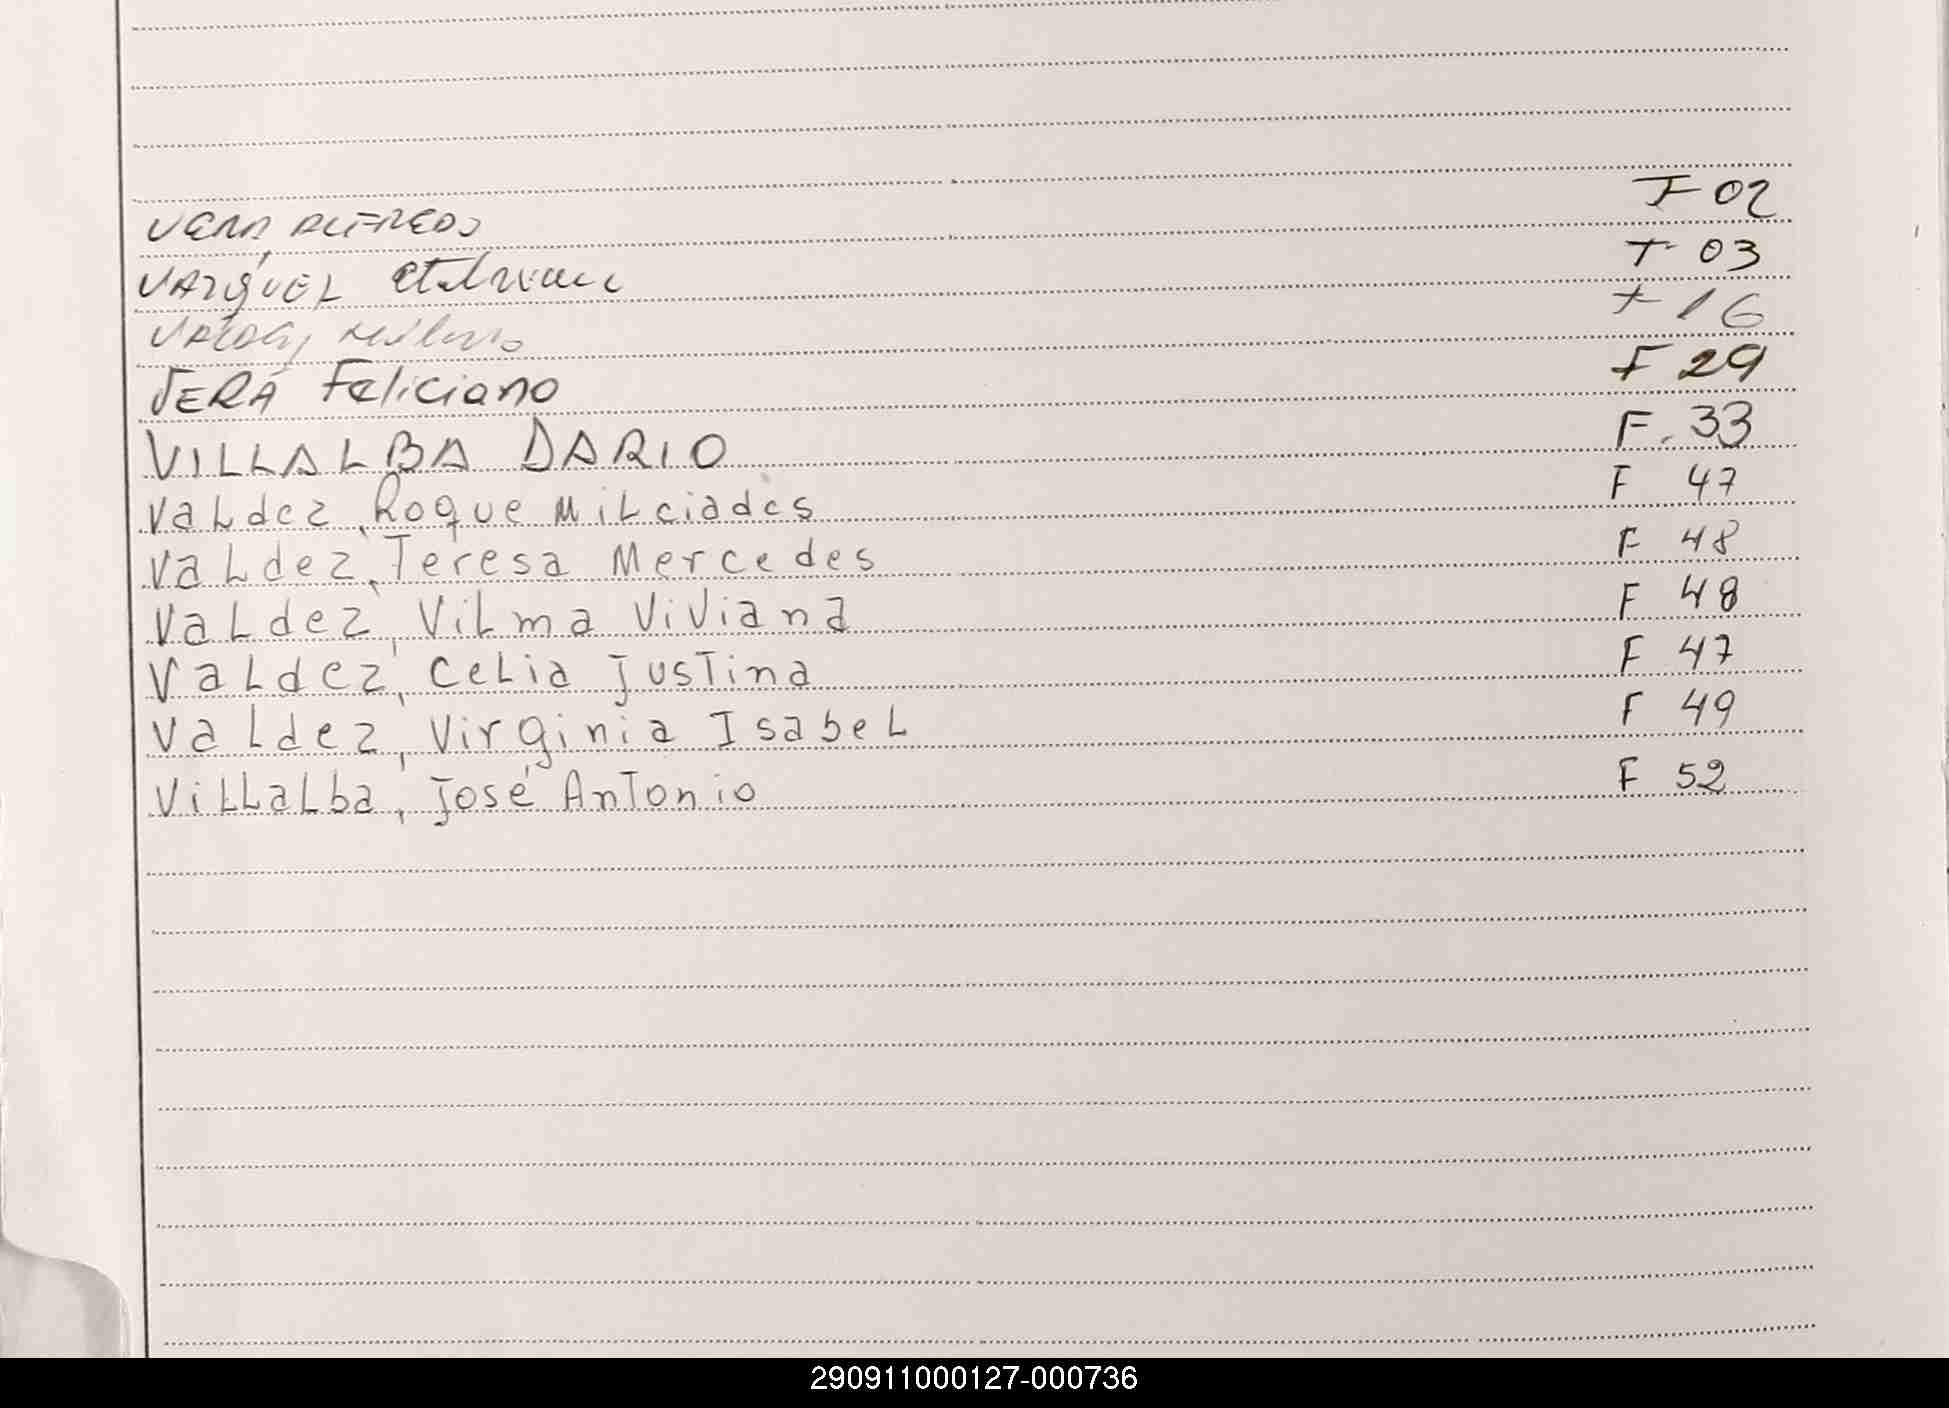 VERA ALFREDO F 02
VAZQUEZ F 03
F 16
VERA Feliciano F 29
VILLALBA DARIO F. 33
Valdez, Roque Milciades F 47
Valdez, Teresa Mercedes F 48
Valdez, Vilma Viviana F 48
Valdez, Celia Justina F 47
Valdez, Virginia Isabel F 49
Villalba, José Antonio F 52
290911000127-000736